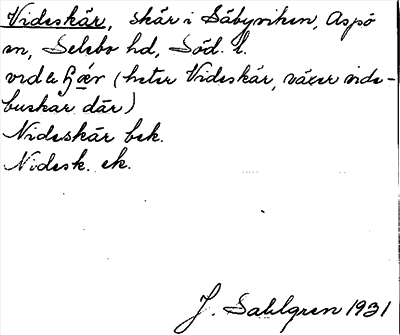 Videskär, skär i Säbyviken, Aspö
sn, Selebo hd, Söd. l.
(heter Videskär, växer vide-
buskar där)
Nideskär bek.
Nidesk. ek.
J. Sahlgren 1931